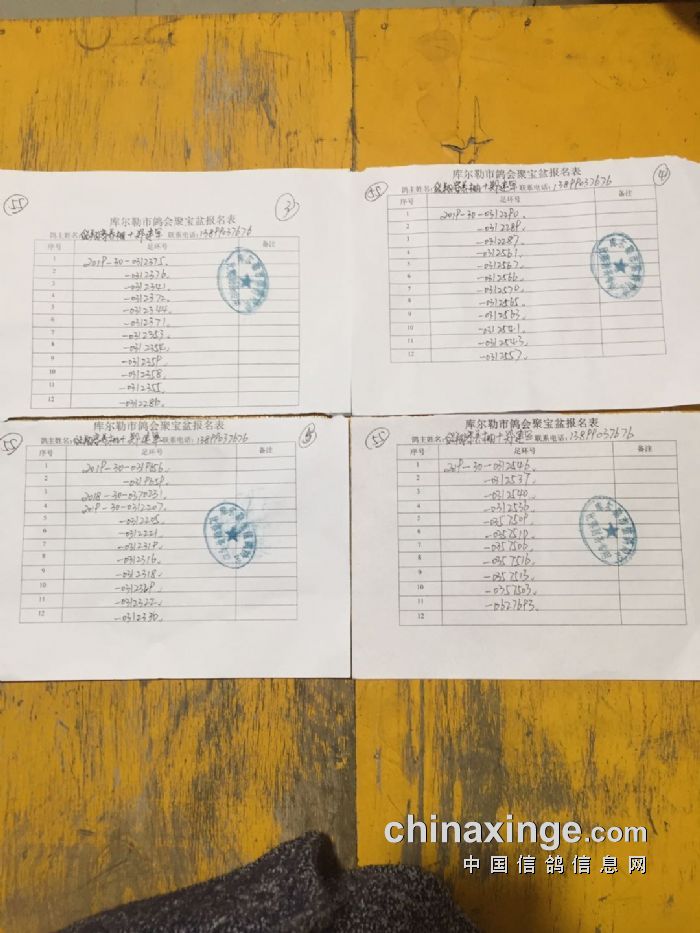 55
3
库尔勒市鸽会聚宝盆报名表
鸽主姓名: 郑建军 联系电话: 13899037676
序号 足环号 备注
1 2019-30-0312375
2 -0312376
3 -0312341
4 -0312372
5 -0312344
6 -0312371
7 -0312353
8 -0312354
9 -0312359
10 -0312358
11 -0312355
12 -0312286
55
4
库尔勒市鸽会聚宝盆报名表
鸽主姓名: 郑建军 联系电话: 13899037676
序号 足环号 备注
1 2019-30-0312290
2 -0312289
3 -0312287
4 -0312561
5 -0312567
6 -0312566
7 -0312570
8 -0312565
9 -0312563
10 -0312541
11 -0312543
12 -0312557
55
库尔勒市鸽会聚宝盆报名表
鸽主姓名: 郑建军 联系电话: 13899037676
序号 足环号 备注
1 2019-30-0319656
2 -0319659
3 2018-30-0370231
4 2019-30-0312207
5 -0312205
6 -0312221
7 -0312319
8 -0312316
9 -0312318
10 -0312369
11 -0312322
12 -0312330
55
库尔勒市鸽会聚宝盆报名表
鸽主姓名: 郑建军 联系电话: 13899037676
序号 足环号 备注
1 2019-30-0312546
2 -0312537
3 -0312540
4 -0312536
5 -0357509
6 -0357511
7 -0357506
8 -0357516
9 -0357513
10 -0357503
11 -0627693
12
chinaxinge.com
中国信鸽信息网